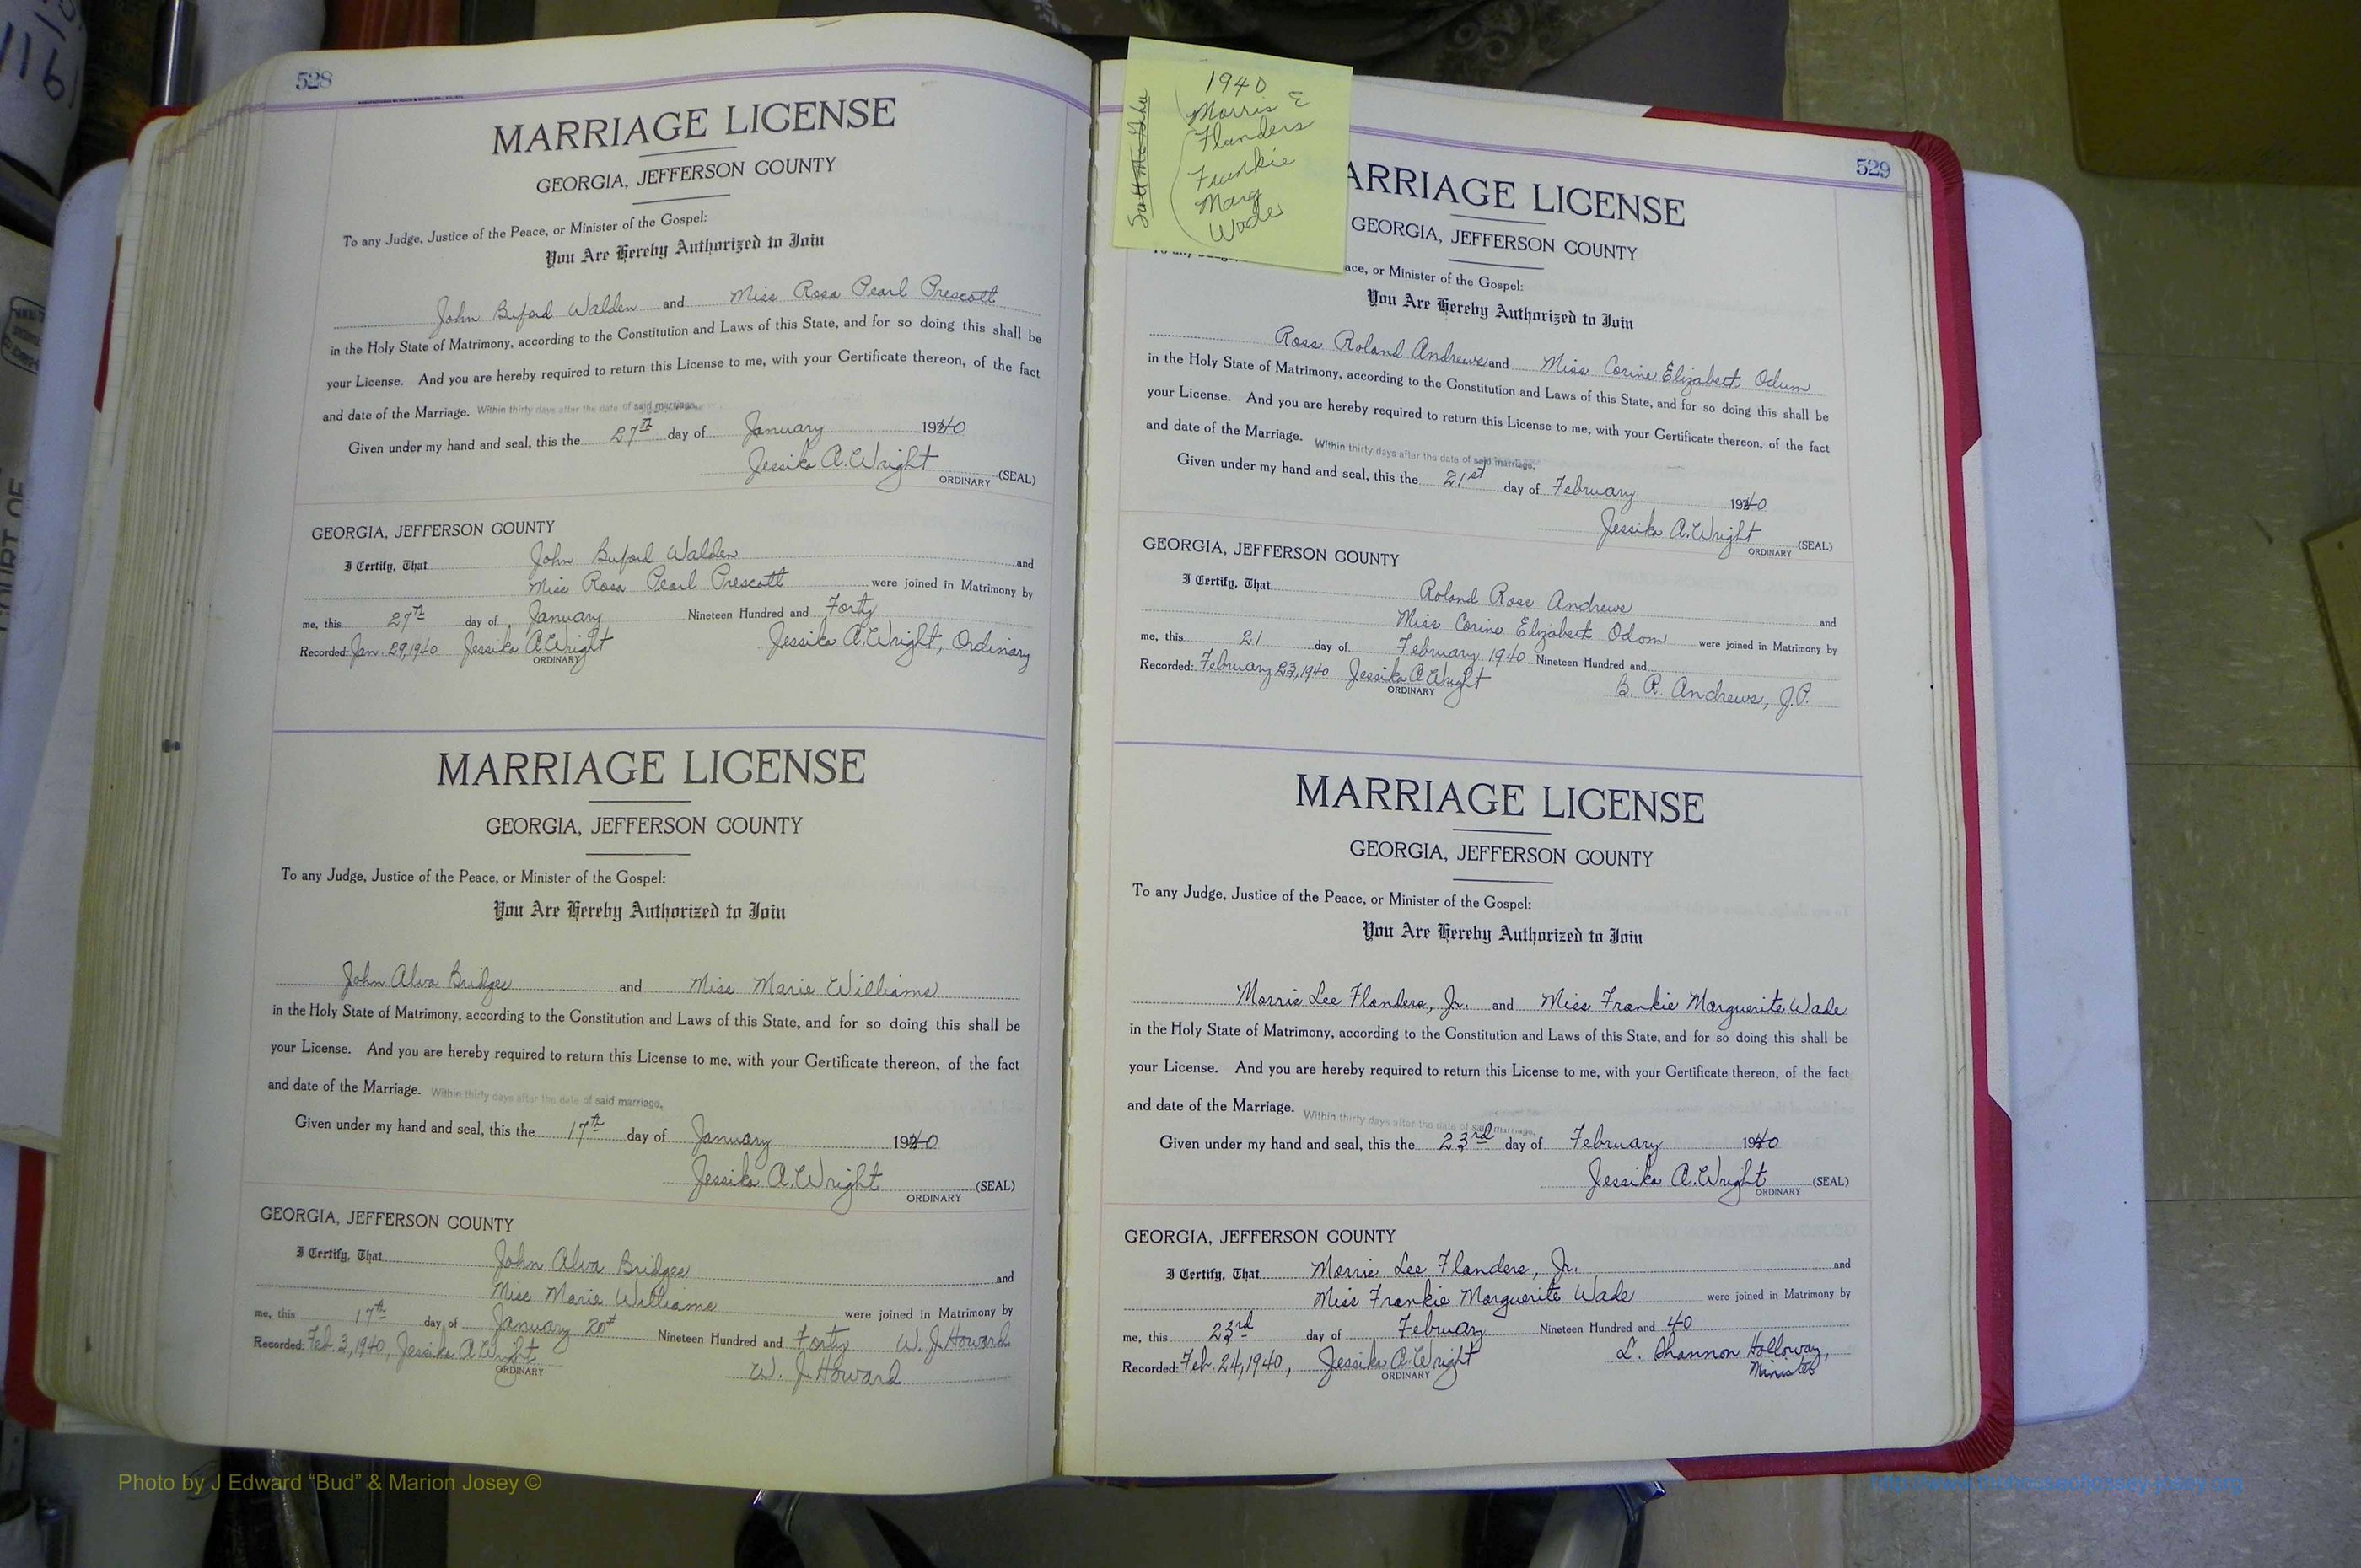 528
MARRIAGE LICENSE
GEORGIA, JEFFERSON COUNTY
To any Judge, Justice of the Peace, or Minister of the Gospel:
You Are Hereby Authorized to Join
John Buford Walden and Miss Rosa Pearl Prescott
in the Holy State of Matrimony, according to the Constitution and Laws of this State, and for so doing this shall be
your License. And you are hereby required to return this License to me, with your Certificate thereon, of the fact
and date of the Marriage. Within thirty days after the date of said marriage.
Given under my hand and seal, this the 27th day of January 1940
Jessika A. Wright (SEAL)
ORDINARY
GEORGIA, JEFFERSON COUNTY
I Certify, That John Buford Walden and
Miss Rosa Pearl Prescott were joined in Matrimony by
me, this 27th day of January Nineteen Hundred and Forty
Recorded: Jan. 29, 1940 Jessika A. Wright Jessika A. Wright, Ordinary
ORDINARY
MARRIAGE LICENSE
GEORGIA, JEFFERSON COUNTY
To any Judge, Justice of the Peace, or Minister of the Gospel:
You Are Hereby Authorized to Join
John Alva Bridges and Miss Marie Williams
in the Holy State of Matrimony, according to the Constitution and Laws of this State, and for so doing this shall be
your License. And you are hereby required to return this License to me, with your Certificate thereon, of the fact
and date of the Marriage. Within thirty days after the date of said marriage.
Given under my hand and seal, this the 17th day of January 1940
Jessika A. Wright (SEAL)
ORDINARY
GEORGIA, JEFFERSON COUNTY
I Certify, That John Alva Bridges and
Miss Marie Williams were joined in Matrimony by
me, this 17th day of January 20th Nineteen Hundred and Forty W. J. Howard
Recorded: Feb. 3, 1940, Jessika A Wright W. J. Howard
ORDINARY
1940
Morris E
Flanders
Frankie
Marg
Wade
529
ARRIAGE LICENSE
GEORGIA, JEFFERSON COUNTY
ace, or Minister of the Gospel:
You Are Hereby Authorized to Join
Ross Roland Andrews and Miss Corine Elizabeth Odum
in the Holy State of Matrimony, according to the Constitution and Laws of this State, and for so doing this shall be
your License. And you are hereby required to return this License to me, with your Certificate thereon, of the fact
and date of the Marriage. Within thirty days after the date of said marriage.
Given under my hand and seal, this the 21st day of February 1940
Jessika A. Wright (SEAL)
ORDINARY
GEORGIA, JEFFERSON COUNTY
I Certify, That Roland Ross Andrews and
Miss Corine Elizabeth Odom were joined in Matrimony by
me, this 21 day of February 1940 Nineteen Hundred and
Recorded: February 23, 1940 Jessika A Wright B. R. Andrews, J.P.
ORDINARY
MARRIAGE LICENSE
GEORGIA, JEFFERSON COUNTY
To any Judge, Justice of the Peace, or Minister of the Gospel:
You Are Hereby Authorized to Join
Morris Lee Flanders, Jr. and Miss Frankie Marguerite Wade
in the Holy State of Matrimony, according to the Constitution and Laws of this State, and for so doing this shall be
your License. And you are hereby required to return this License to me, with your Certificate thereon, of the fact
and date of the Marriage. Within thirty days after the date of said marriage.
Given under my hand and seal, this the 23rd day of February 1940
Jessika A. Wright (SEAL)
ORDINARY
GEORGIA, JEFFERSON COUNTY
I Certify, That Morris Lee Flanders, Jr. and
Miss Frankie Marguerite Wade were joined in Matrimony by
me, this 23rd day of February Nineteen Hundred and 40
Recorded: Feb. 24, 1940, Jessika A. Wright L. Shannon Holloway,
ORDINARY Minister
Photo by J Edward “Bud” & Marion Josey ©